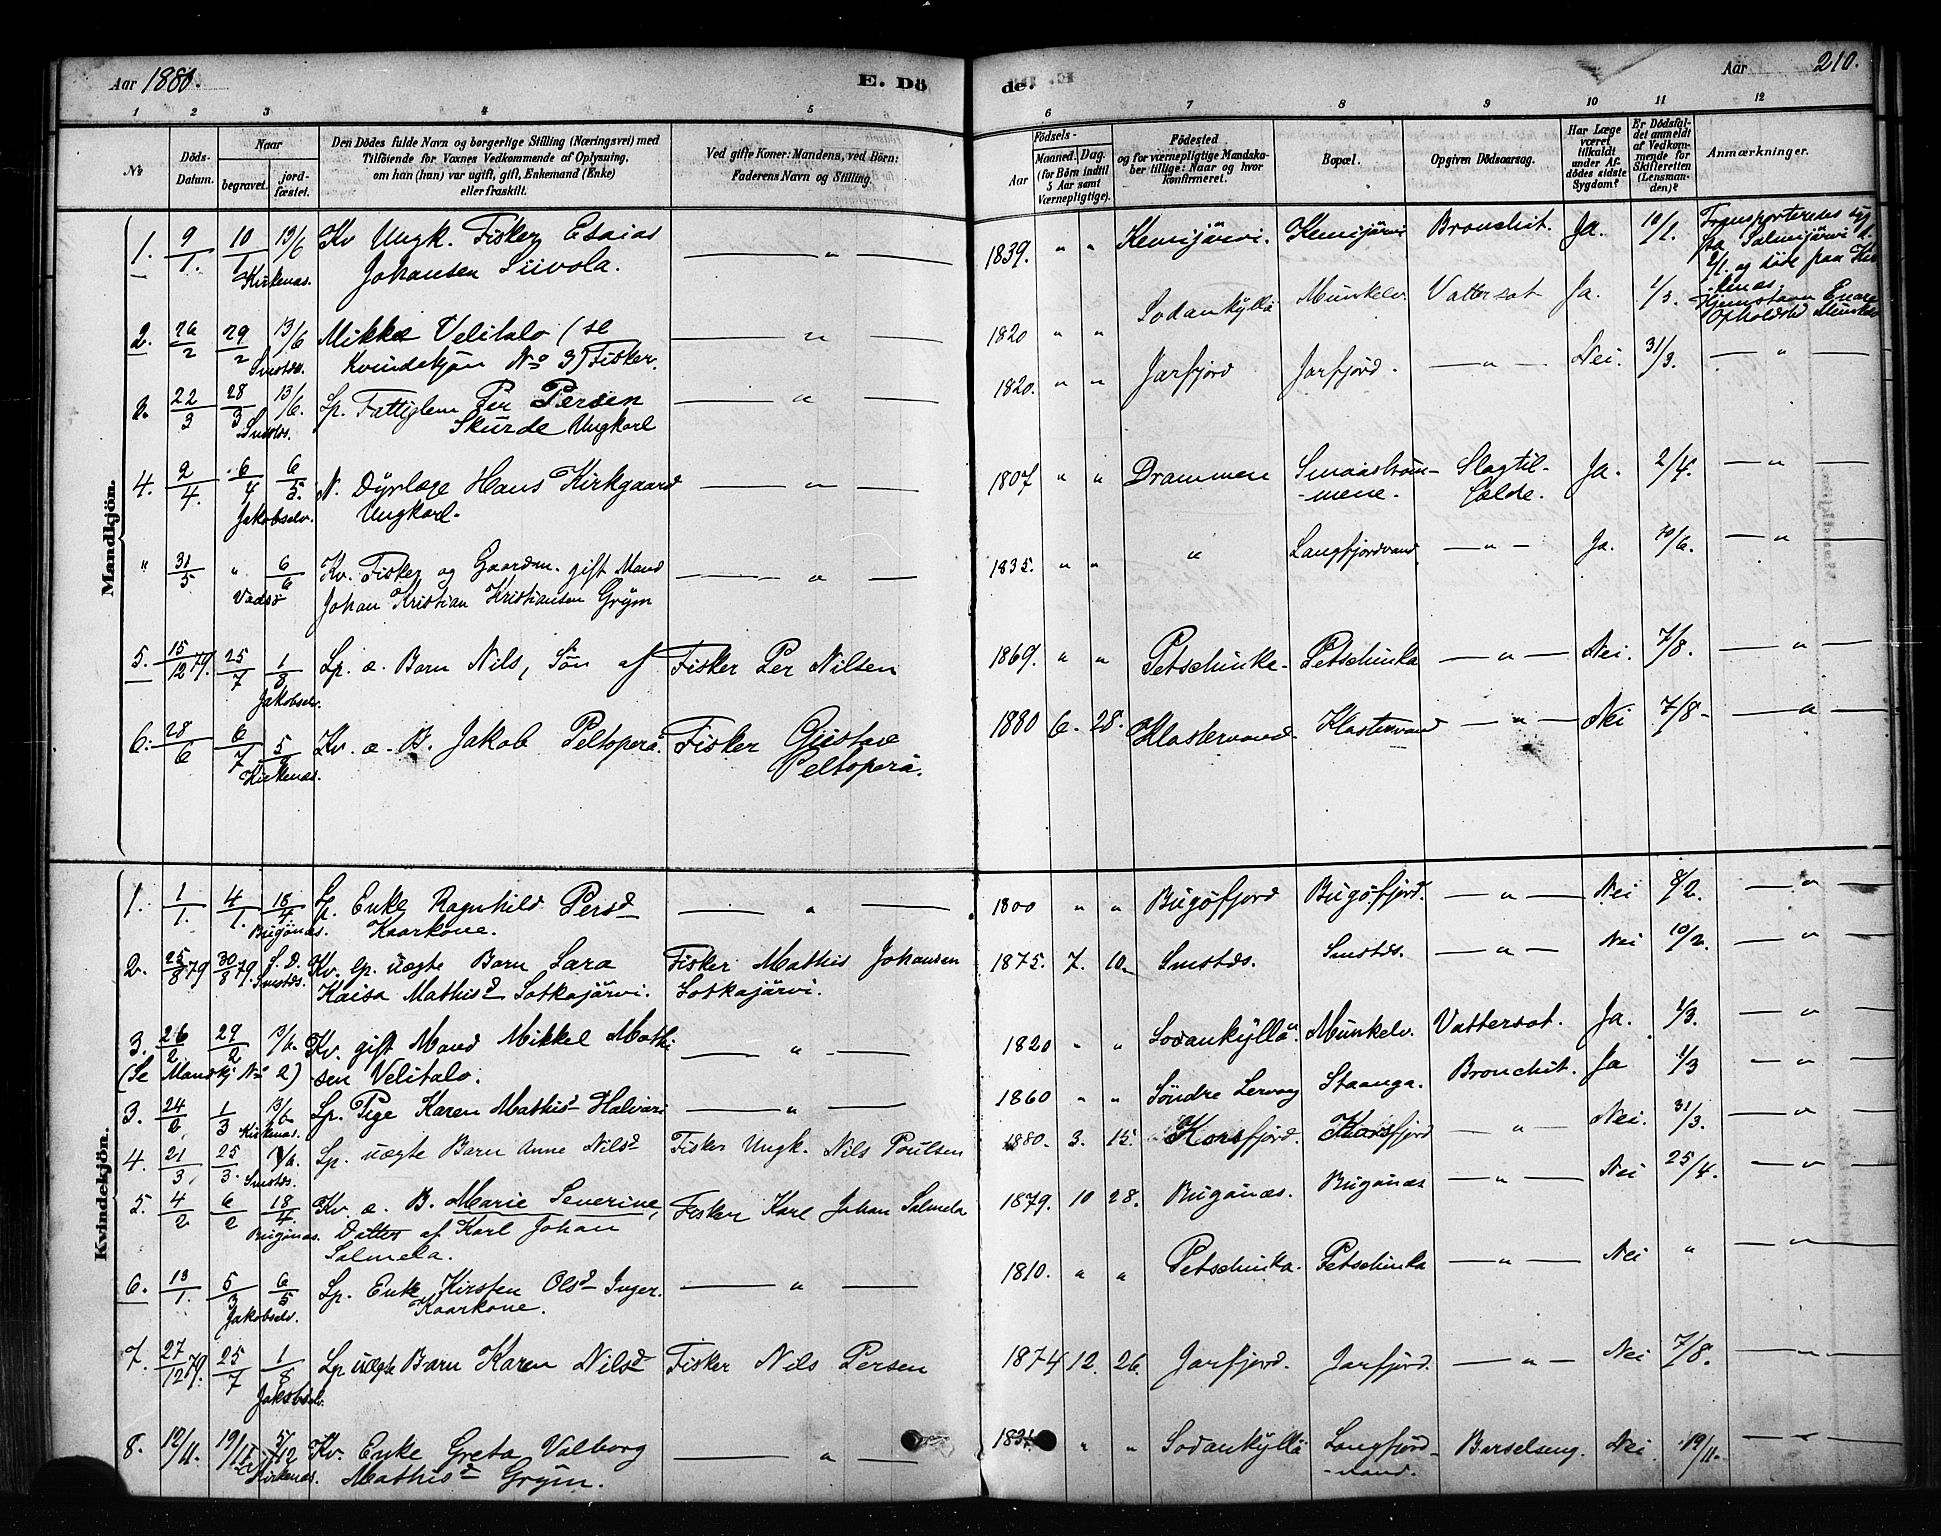 Aar 1880. E. Dö
de. Aar 210.
1 2 3 4 5
6 7 8 9 10 11 12
No
Döds-Datum.
Naar
begravet. jord-fæstet.
Den Dödes fulde Navn og borgerlige Stilling (Næringsvei) med
Tilföiende for Voxnes Vedkommende af Oplysning,
om han (hun) var ugift, gift, Enkemand (Enke)
eller fraskilt.
Ved gifte Koner: Mandens, ved Börn:
Faderens Navn og Stilling.
Födsels-
Aar Maaned. Dag.
(for Börn indtil
5 Aar samt
Værnepligtige).
Födested
og for værnepligtige Mandska-
ber tillige: Naar og hvor
konfirmeret.
Bopæl.
Opgiven Dödsaarsag.
Har Læge
været
tilkaldt
under Af-
dödes sidste
Sygdom?
Er Dödsfal-
det anmeldt
af Vedkom-
mende for
Skifteretten
(Lensman-
den)?
Anmærkninger.
Mandkjön.
1. 9/1. 10/1 Kirkenæs. 13/6 Kv Ungk. Fisker Esaias
Johansen Siivola. — " — 1839. " " Kemijärvi. Kemijärvi Bronchit. Ja. 10/1. Transporteredes syg
fra Salmijärvi
2/1. og döde paa Kir
kenæs.
2. 26/2 29/2 Smstds. 13/6 Mikkel Velitalo (se
Kvindekjön No 3) Fisker. — " — 1820 " " Sodankyllä Munkelv. Vattersot Ja. 1/3. Hjemstavn Enare
Opholdsted Munkelv
3. 22/3 28/3 Smstds. 13/6. Lp. Fattiglem Per Persen
Skurde Ungkarl — " — 1820. " " Jarfjord Jarfjord. — " — Nei. 31/3. — " —
4. 2/4. 6/4 Jakobselv. 6/5. N. Dyrlæge Hans Kirkgaard
Ungkarl. — " — 1807 " " Drammen Smaaström-
-mene. Slagtil-
fælde. Ja. 2/4. — " —
" 31/5 " Vadsö 6/6 Kv. Fisker og Gaardm. gift Mand
Johan Kristian Kristiansen Grym — " — 1835. " " " Langfjordvand — " — Ja. 10/6. — " —
5. 15/12 79. 25/7 1/8 Jakobselv. Lp. æ. Barn Nils, Sön af Fisker Per Nilsen 1869. " " Petschinka. Petschinka — " — Nei. 7/8. — " —
6. 28/6 6/7 Kirkenæs. Kv. æ. B. Jakob Peltoperä. Fisker Gustav
Peltoperä. 1880 6. 28. Klostervand. Klostervand — " — Nei 7/8 — " —
Kvindekjön.
1. 1/1. 4/1. Bugönæs. 18/4. Lp. Enke Ragnhild Persd
Kaarkone. — " — 1800 " " Bugöfjord Bugöfjord. — " — Nei 8/2. — " —
2. 25/8 79 30/8 79. S. D. Smstds. Kv. Lp. uægte Barn Sara
Kaisa Mathisd Sotkajärvi. Fisker Mathis Johansen
Sotkajärvi. 1875. 7. 10. Smstds. Smstds. — " — Nei 10/2. — " —
3. 26/2 29/2 13/6. Kv. gift Mand Mikkel Mathi
(Se Mandkj No 2) sen Velitalo. — " — 1820 " " Sodankyllä. Munkelv. Vattersot. Ja. 1/3. — " —
3. 24/2 1/3 Kirkenæs. 13/6 Lp. Pige Karen Mathisd Halvari — " — 1860 " " Söndre Lervaag Staanga. Bronchit. Ja 1/3 — " —
4. 21/3 25/3. Smstds. Lp. uægte Barn Anne Nilsd Fisker Ungk. Nils Poulsen 1880. 3. 15. Korsfjord. Korsfjord — " — Nei. 31/3. — " —
5. 4/2 6/2 Bugönæs. 18/4. Kv. æ. B. Marie Severine,
Datter af Karl Johan
Salmela. Fisker Karl Johan Salmela 1879. 10 28. Bugönæs. Bugönæs — " — Nei 25/4. — " —
6. 13/1. 5/3 Jakobselv. 6/5 Lp. Enke Kirsten Olsd Inger.
Kaarkone. — " — 1810. " " Petschinka. Petschinka — " — Nei " — " —
7. 27/12 79. 25/7 1/8 Jakobselv. Lp uægte Barn Karen Nilsd Fisker Nils Persen 1874 12. 26. Jarfjord. Jarfjord. — " — Nei 7/8. — " —
8. 12/11. 19/11 Kirkenæs. 5/12 Kv. Enke Greta Valborg
Mathisd Grym. — " — 183 " " Sodankyllä Langfjord-
-vand. Barselseng. Nei 19/11. — " —